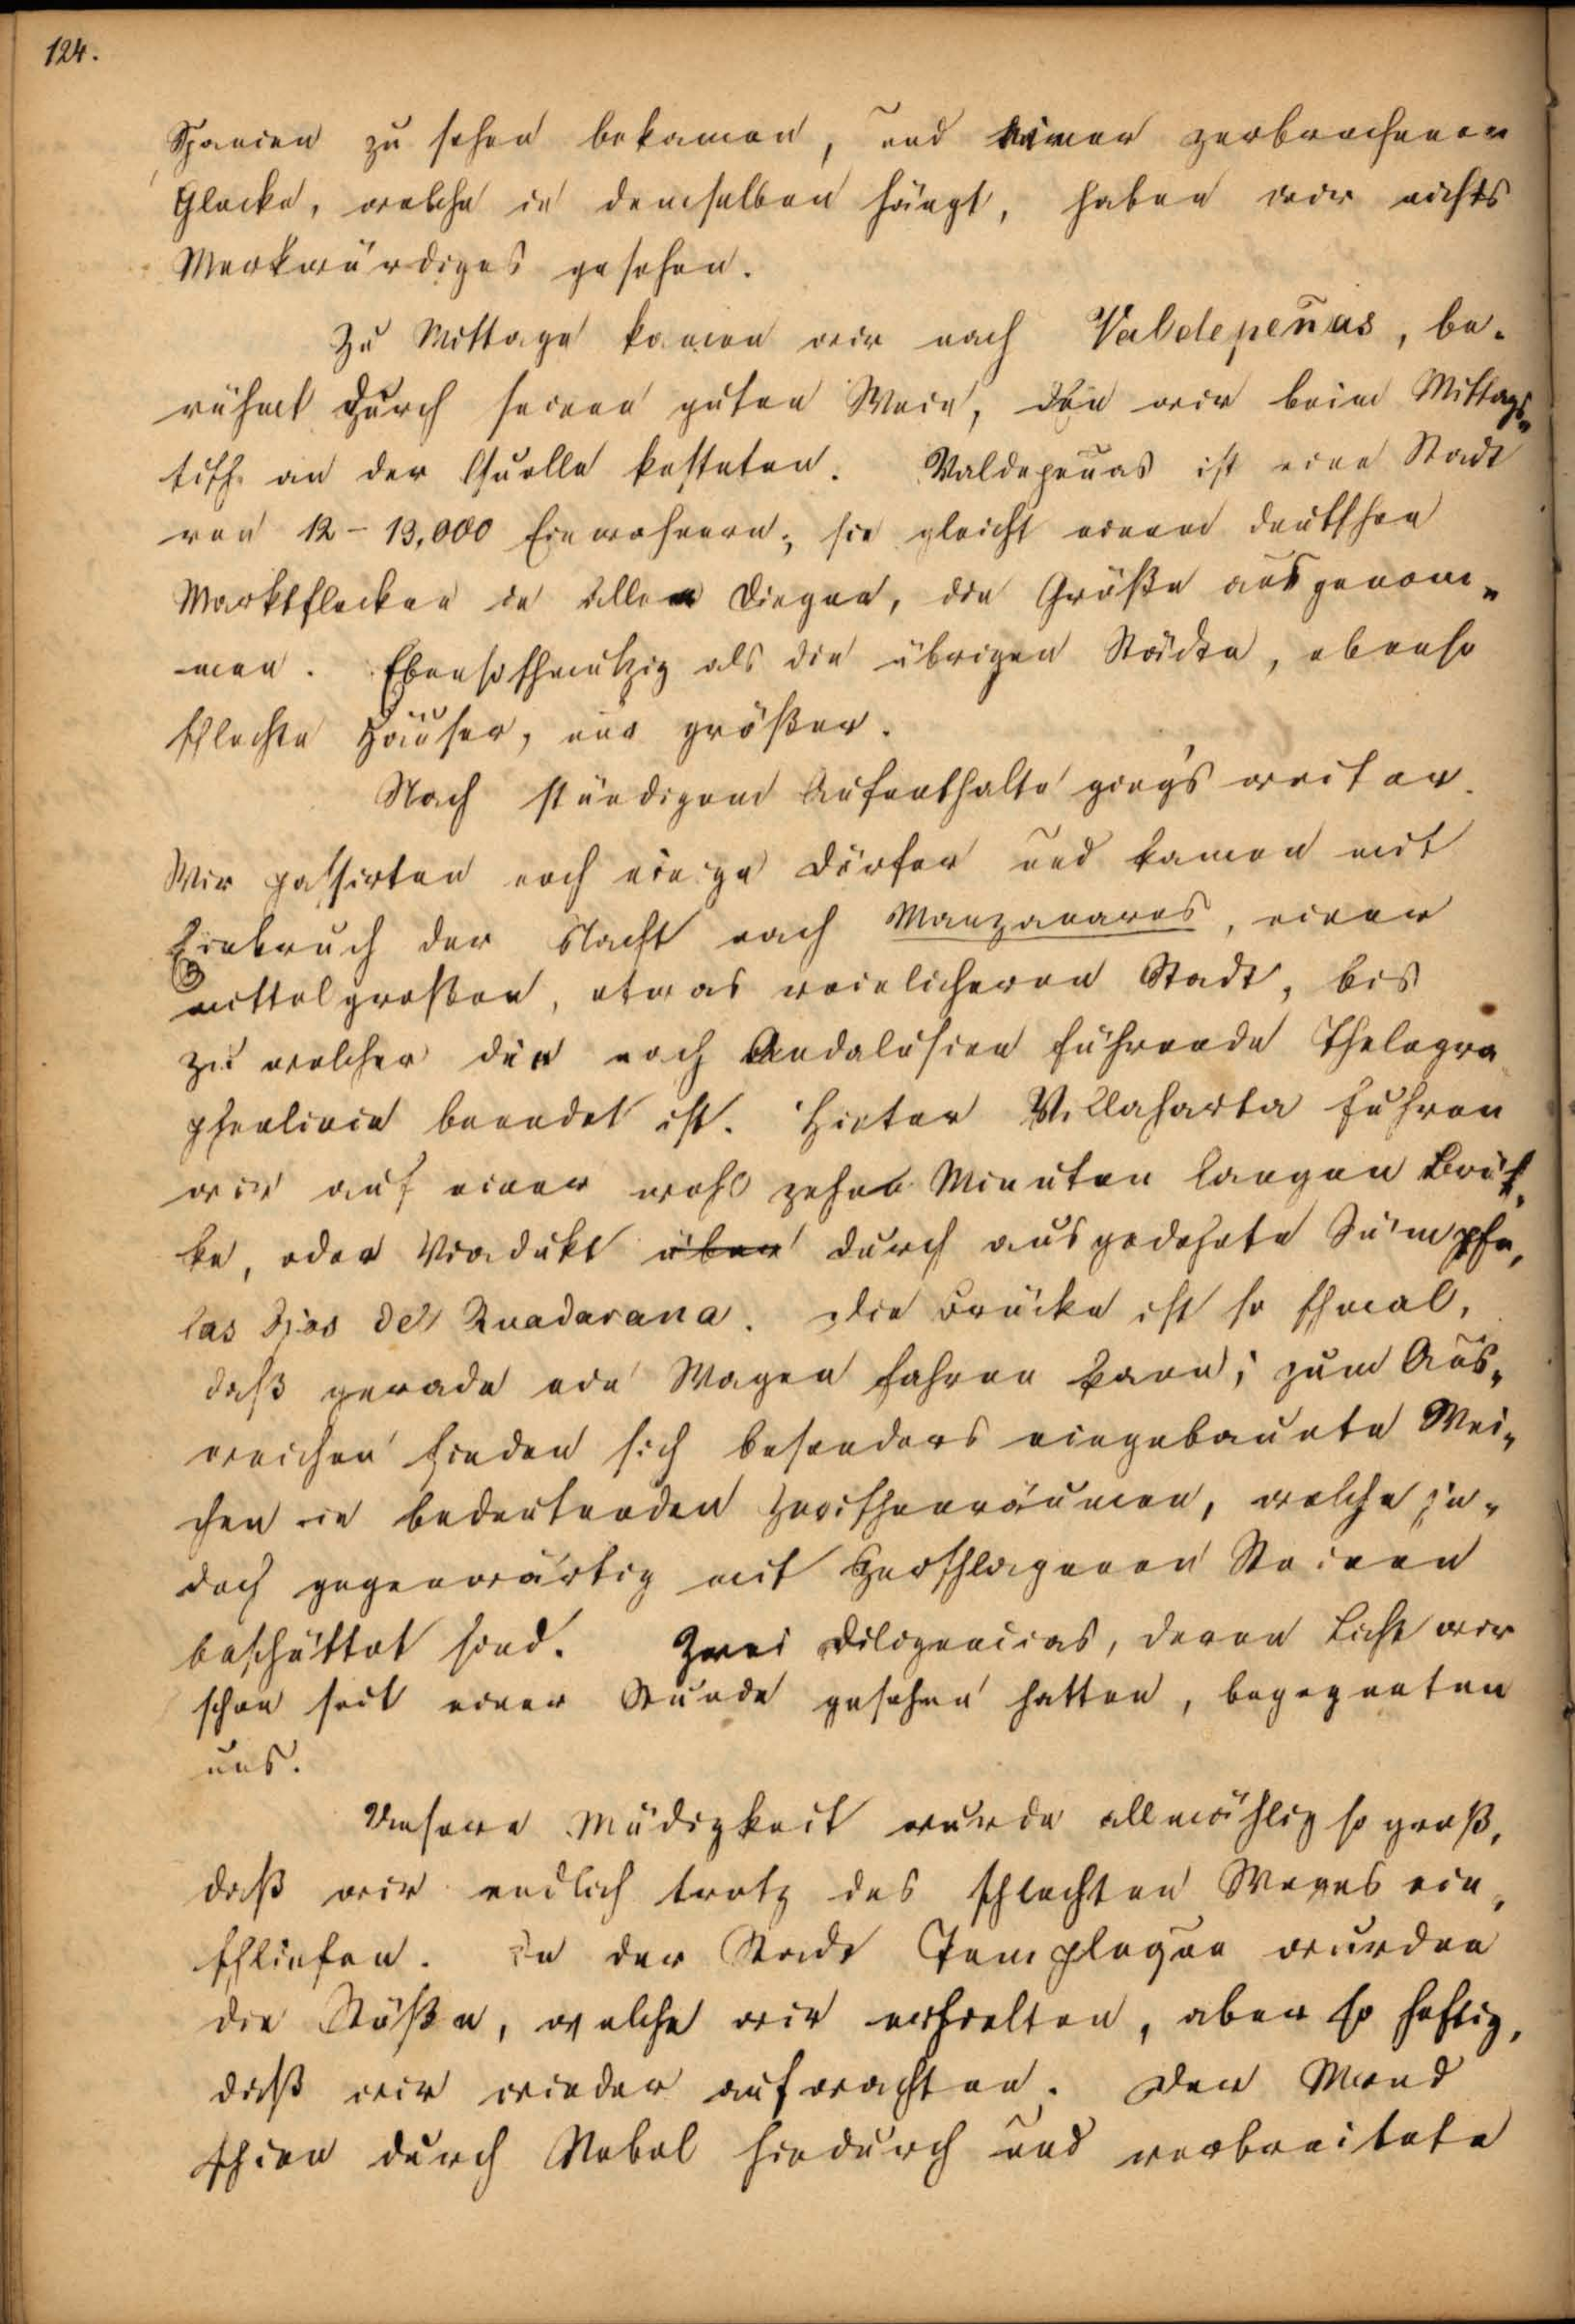 124.
Spanien zu sehen bekamen, und einer zerbrochenen
Glocke, welche in demselben hängt, haben wir nichts
Merkwürdiges gesehen.
Zu Mittage kamen wir nach Valdepeñas, be-
rühmt durch seinen guten Wein, den wir beim Mittags-
tisch an der Quelle kosteten. Valdepenas ist eine Stadt
von 12-13,000 Einwohnern; sie gleicht einem deutschen
Marktflecken in allen Dingen, die Größe ausgenom-
-men. Ebenso schmutzig als die übrigen Städte, ebenso
schlechte Häuser, nur größer.
Nach stündigem Aufenthalte ging's weiter.
Wir passirten noch einige Dörfer und kamen mit
Einbruch der Nacht nach Manzanares, einer
mittelgroßen, etwas reinlicheren Stadt, bis
zu welcher die nach Andalusien führende Thelegra-
phenlinie beendet ist. Hinter Villaharta fuhren
wir auf einer wohl zehn Minuten langen Brük-
ke, oder Viadukt über durch ausgedehnte Sümpfe,
las Ojos del Quadarana. Die Brücke ist so schmal,
daß gerade ein Wagen fahren kann; zum Aus-
weichen finden sich besonders eingebaute Wei-
chen in bedeutenden Zwischenräumen, welche je-
doch gegenwärtig mit zerschlagenen Steinen
beschüttet sind. Zwei Diligencias, deren Licht wir
schon seit einer Stunde gesehen hatten, begegneten
uns.
Unsere Müdigkeit wurde allmählig so groß,
daß wir endlich trotz des schlechten Weges ein-
schliefen. In der Stadt Templeque wurden
die Stöße, welche wir erhielten, aber so heftig,
daß wir wieder aufwachten. Der Mond
schien durch Nebel hindurch und verbreitete